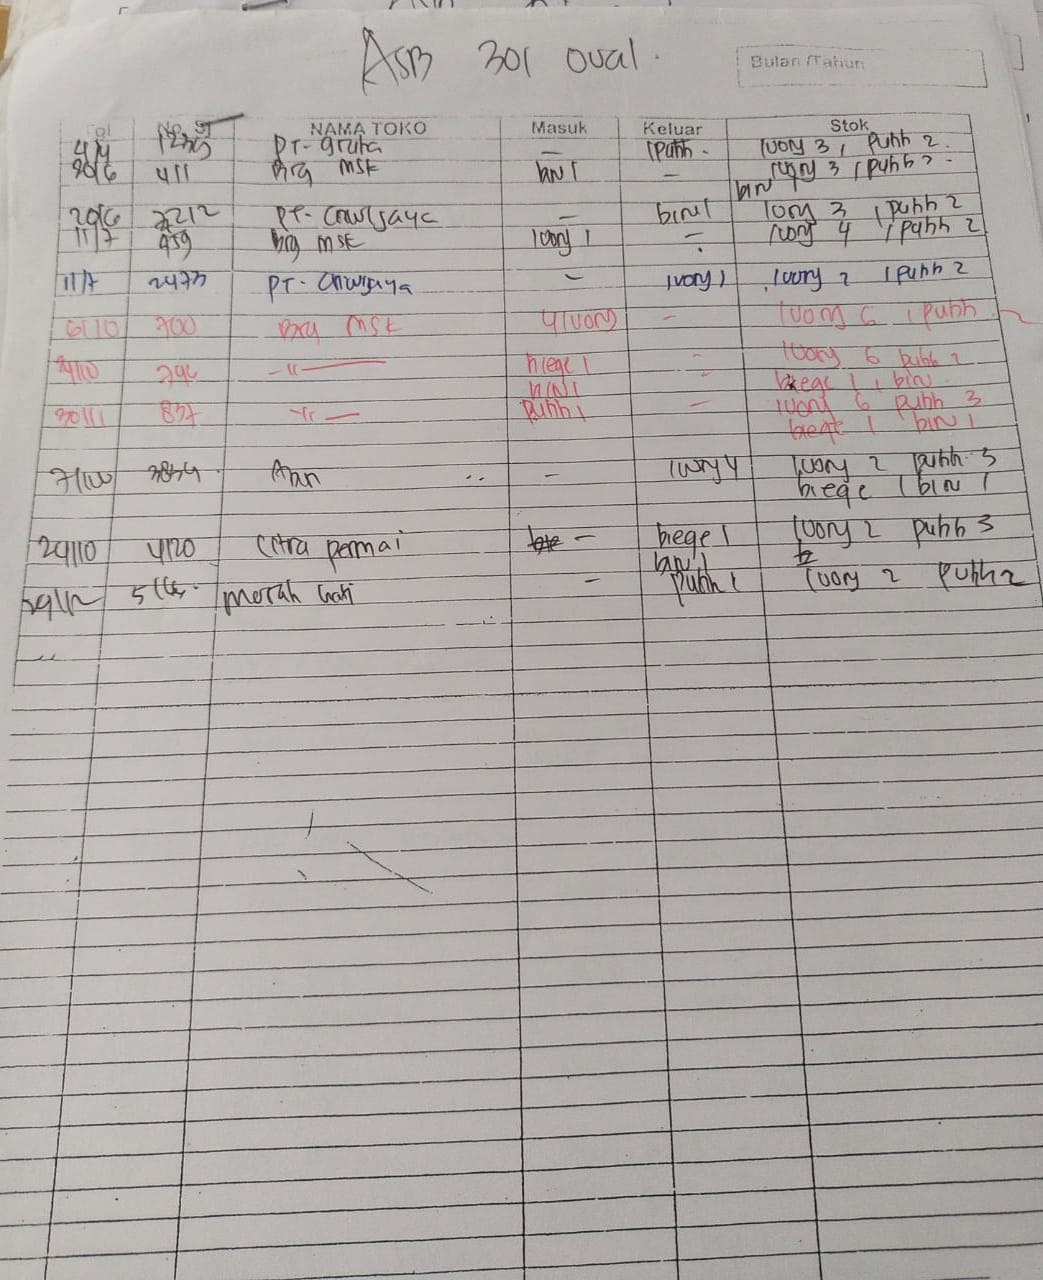 ASB 301 oval.
Bulan/Tahun
Tgl NAMA TOKO Masuk Keluar Stok
4/4 PT- gruha — 1 Putih. Ivory 3, Putih 2.
20/6 411 Brg msk biru 1 — Ivory 3, Putih 2.
biru 1
20/6 2212 PT- — biru 1 Ivory 3, putih 2
11/7 459 brg msk Ivory 1 - Ivory 4, putih 2
11/7 2473 PT- - Ivory 1 Ivory 2, putih 2
6/10 700 Brg msk 4 Ivory - Ivory 6, putih 2
794 -"- biege 1 - Ivory 6 putih 2
biru 1 - biege 1, biru
30/11 837 -"- Putih 1 - Ivory 6 putih 3
biege 1 biru 1
3834 - Ivory 4 Ivory 2 putih 3
biege 1 biru 1
24/10 4120 Citra permai - biege 1 Ivory 2 putih 3
biru 1
merah hati - putih 1 Ivory 2 putih 2